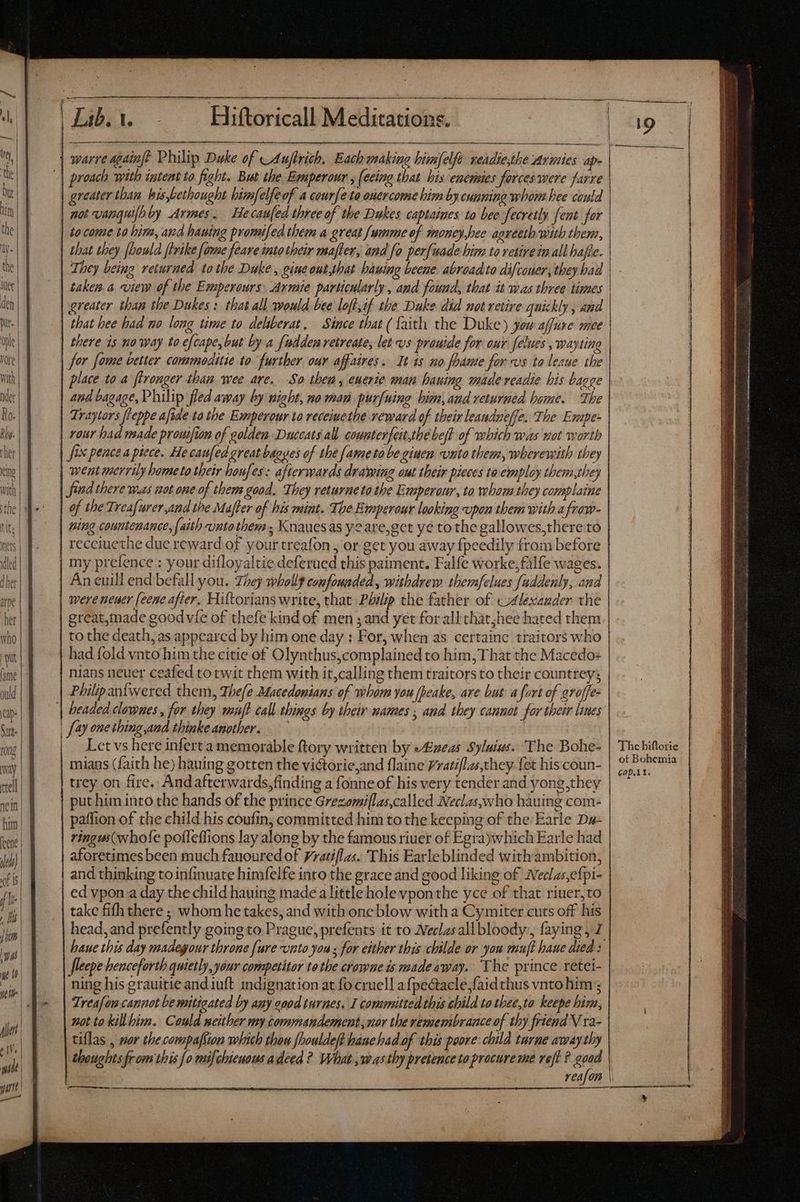 Lib. 1. Hiſtoricall Meditations. 19
warre againſt Philip Duke of Auſtrich. Each making himſelfe readie, the armies ap-
proach with intent to fight. But the Emperour, ſeeing that his enemies forces were farre
greater than his, bethought himſelfe of a courſe to ouercome him by cunning whom hee could
not vanquiſh by Armes. He cauſed three of the Dukes captaines to bee ſecretly ſent for
to come to him, and hauing promiſed them a great ſumme of money, hee agreeth with them,
that they ſhould ſtrike ſome feare into their maſter, and ſo perſwade him to retire in all haſte.
They being returned to the Duke, giue out, that hauing beene abroad to diſcouer, they had
taken a view of the Emperours Armie particularly, and found, that it was three times
greater than the Dukes: that all would bee loſt, if the Duke did not retire quickly, and
that hee had no long time to deliberat. Since that (ſaith the Duke) you aſſure mee
there is no way to eſcape, but by a ſudden retreate, let vs prouide for our ſelues, wayting
for ſome better commoditie to further our affaires. It is no ſhame for vs to leaue the
place to a ſtronger than wee are. So then, euerie man hauing made readie his bagge
and bagage, Philip fled away by night, no man purſuing him, and returned home. The
Traytors ſteppe aſide to the Emperour to receiue the reward of their leaudneſſe. The Empe-
rour had made prouiſion of golden Duccats all counterfeit, the beſt of which was not worth
ſix pence a piece. He cauſed great bagges of the ſame to be giuen vnto them, wherewith they
went merrily home to their houſes: afterwards drawing out their pieces to employ them, they
find there was not one of them good. They returne to the Emperour, to whom they complaine
of the Treaſurer, and the Maſter of his mint. The Emperour looking vpon them with a frow-
ning countenance, ſaith vnto them, Knaues as ye are, get ye to the gallowes, there to
receiue the due reward of your treaſon, or get you away ſpeedily from before
my preſence: your diſloyaltie deſerued this paiment. Falſe worke, falſe wages.
An euill end befall you. They wholly confounded, withdrew themſelues ſuddenly, and
were neuer ſeene after. Hiſtorians write, that Philip the father of Alexander the
great, made good vſe of theſe kind of men, and yet for all that, hee hated them
to the death, as appeared by him one day: For, when as certaine traitors who
had ſold vnto him the citie of Olynthus, complained to him, That the Macedo-
nians neuer ceaſed to twit them with it, calling them traitors to their countrey;
Philip anſwered them, Theſe Macedonians of whom you ſpeake, are but a ſort of groſſe-
headed clownes, for they muſt call things by their names, and they cannot for their liues
ſay one thing, and thinke another.
Let vs here inſert a memorable ſtory written by Æneas Syluius. The Bohe-
mians (ſaith he) hauing gotten the victorie, and ſlaine Vratiſlas, they ſet his coun-
trey on fire. And afterwards, finding a ſonne of his very tender and yong, they
put him into the hands of the prince Grezomiſlas, called Neclas, who hauing com-
paſſion of the child his couſin, committed him to the keeping of the Earle Du-
ringus (whoſe poſſeſſions lay along by the famous riuer of Egra) which Earle had
aforetimes been much fauoured of Vratiſlas. This Earle blinded with ambition,
and thinking to inſinuate himſelfe into the grace and good liking of Neclas, eſpi-
ed vpon a day the child hauing made a little hole vpon the yce of that riuer, to
take fiſh there; whom he takes, and with one blow with a Cymiter cuts off his
head, and preſently going to Prague, preſents it to Neclas all bloody, ſaying, I
haue this day made your throne ſure vnto you; for either this childe or you muſt haue died:
ſleepe henceforth quietly, your competitor to the crowne is made away. The prince retei-
ning his grauitie and iuſt indignation at ſo cruell a ſpectacle, ſaid thus vnto him;
Treaſon cannot be mitigated by any good turnes. I committed this child to thee, to keepe him,
not to kill him. Could neither my commandement, nor the remembrance of thy friend Vra-
tiſlas, nor the compaſſion which thou ſhouldeſt haue had of this poore child turne away thy
thoughts from this ſo miſchieuous a deed? What was thy pretence to procure me reſt? good
reaſon
The hiſtorie
of Bohemia
cap. 11.